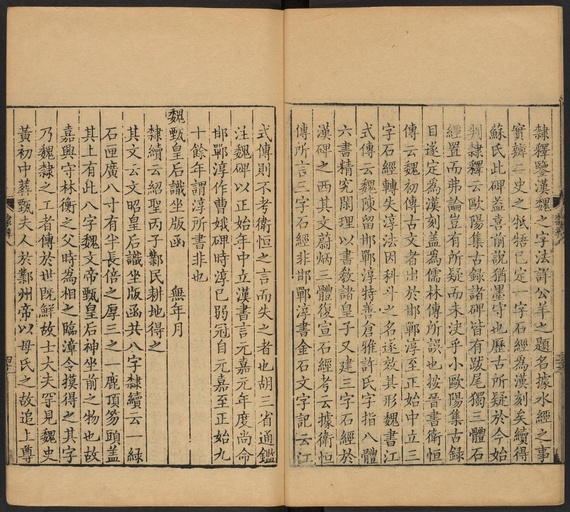 隸釋鑒漢魏之字法詳公羊之題名據水經之事
實辯二史之牴牾已定一字石經為漢刻矣續得
蘇氏此碑益喜前說猶墨守也歷古所疑於今始
判隸釋云歐陽集古錄諸碑皆有跋尾獨三體石
經置而弗論豈有所疑而未決乎小歐陽集古錄
目遂定為漢刻蓋為儒林傳所誤也按晉書衛恒
傳云魏初傳古文者出於邯鄲淳至正始中立三
字石經轉失淳法因科斗之名遂效其形魏書江
式傳云魏陳留邯鄲淳特善倉雅許氏字指八體
六書精究閑理以書教諸皇子又建三字石經於
漢碑之西其文蔚炳三體復宣石經考云據衛恒
傳所言三字石經非邯鄲淳書金石文字記云江
式傳則不考衛恒之言而失之者也胡三省通鑑
注魏碑以正始年中立漢書言元嘉元年度尚命
邯鄲淳作曹娥碑時淳已弱冠自元嘉至正始九
十餘年謂淳所書非也
魏甄皇后識坐版函 無年月
隸續云紹聖丙子鄴民耕地得之
其文云文昭皇后識坐版函共八字隸續云一綠
石匣廣八寸有半長倍之厚三之一鹿頂笏頭蓋
其上有此八字魏文帝甄皇后神坐前之物也故
嘉興守林衡之父時為相之臨漳令摸得之其字
乃魏隸之工者傳於世既鮮故士大夫罕見魏史
黃初中葬甄夫人於鄴州帝以母氏之故追上尊